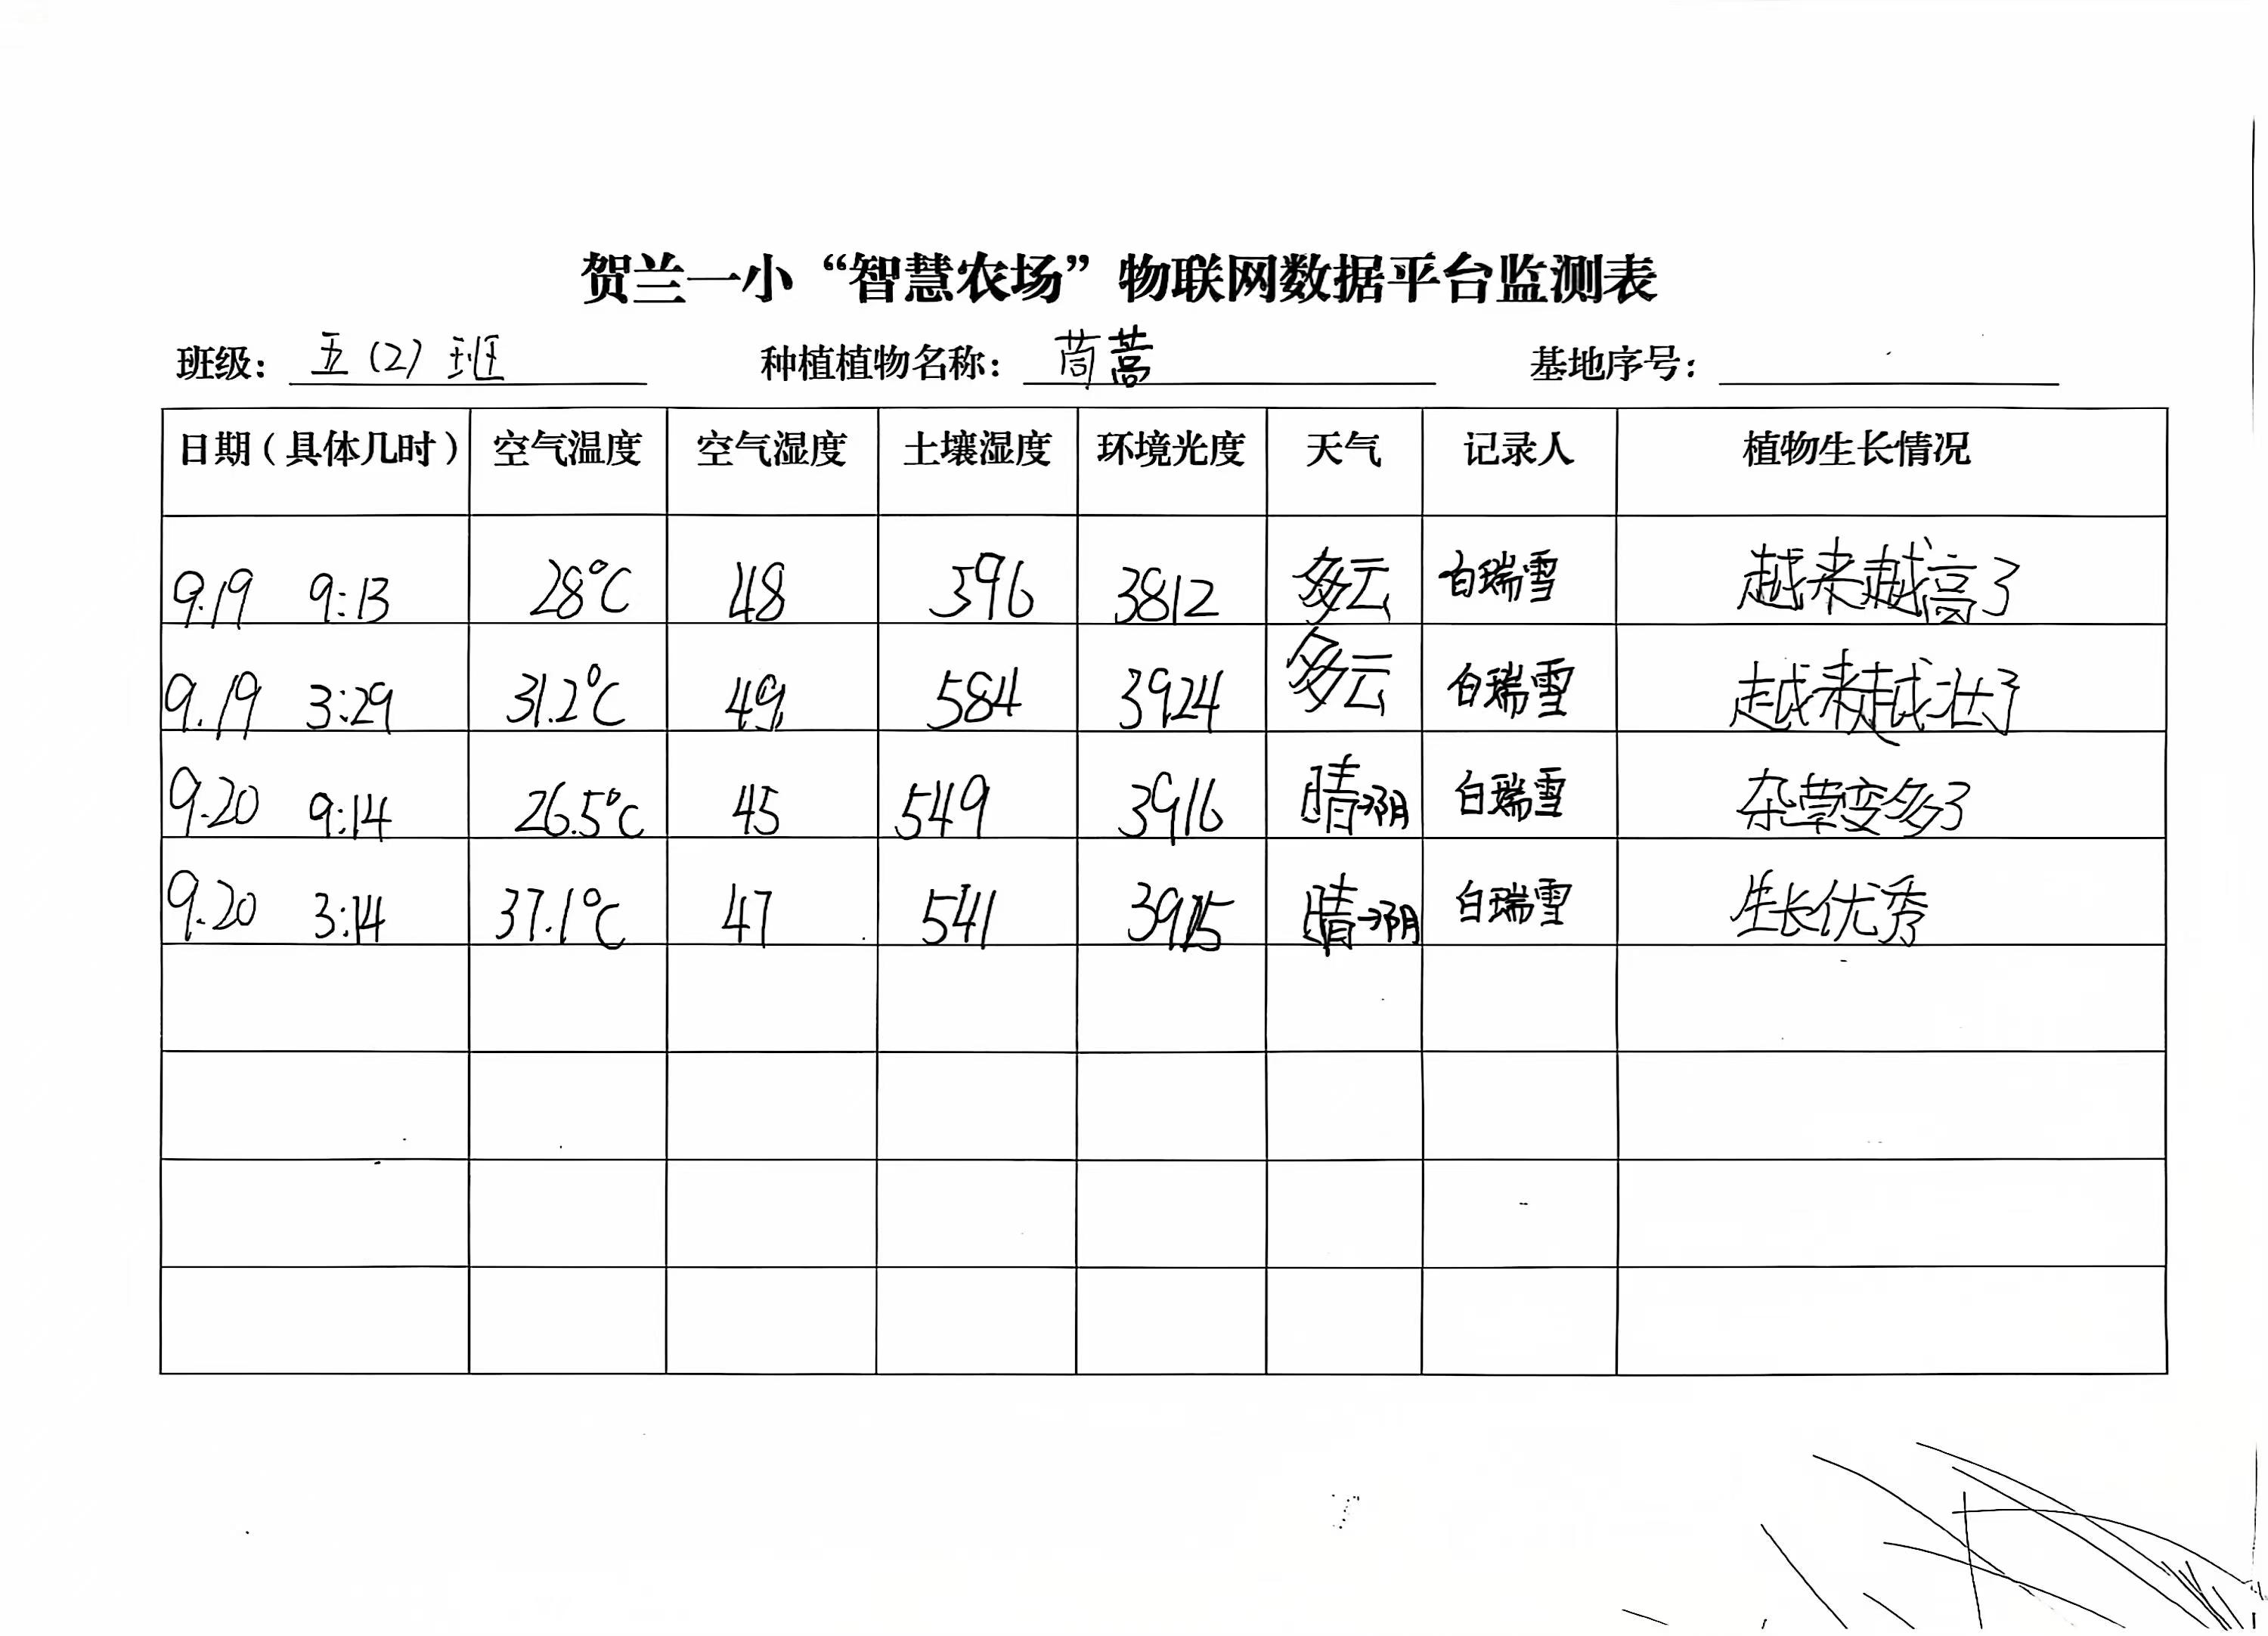 贺兰一小“智慧农场”物联网数据平台监测表
班级： 五（2）班 种植植物名称： 茼蒿 基地序号：
日期（具体几时） 空气温度 空气湿度 土壤湿度 环境光度 天气 记录人 植物生长情况
9.19 9:13 28℃ 48 596 3812 多云 白瑞雪 越来越高了
9.19 3:29 31.2℃ 49 584 3924 多云 白瑞雪 越来越壮了
9.20 9:14 26.5℃ 45 549 3916 晴→阴 白瑞雪 杂草变多了
9.20 3:14 37.1℃ 47 541 3915 晴→阴 白瑞雪 生长优秀